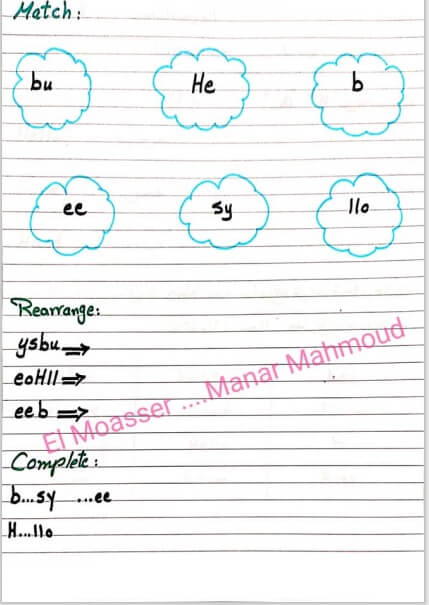 Match:
bu He b
ee sy llo
Rearrange:
ysbu ⇒
eoHll ⇒
eeb ⇒
El Moasser ....Manar Mahmoud
Complete:
b...sy ...ee
H...llo